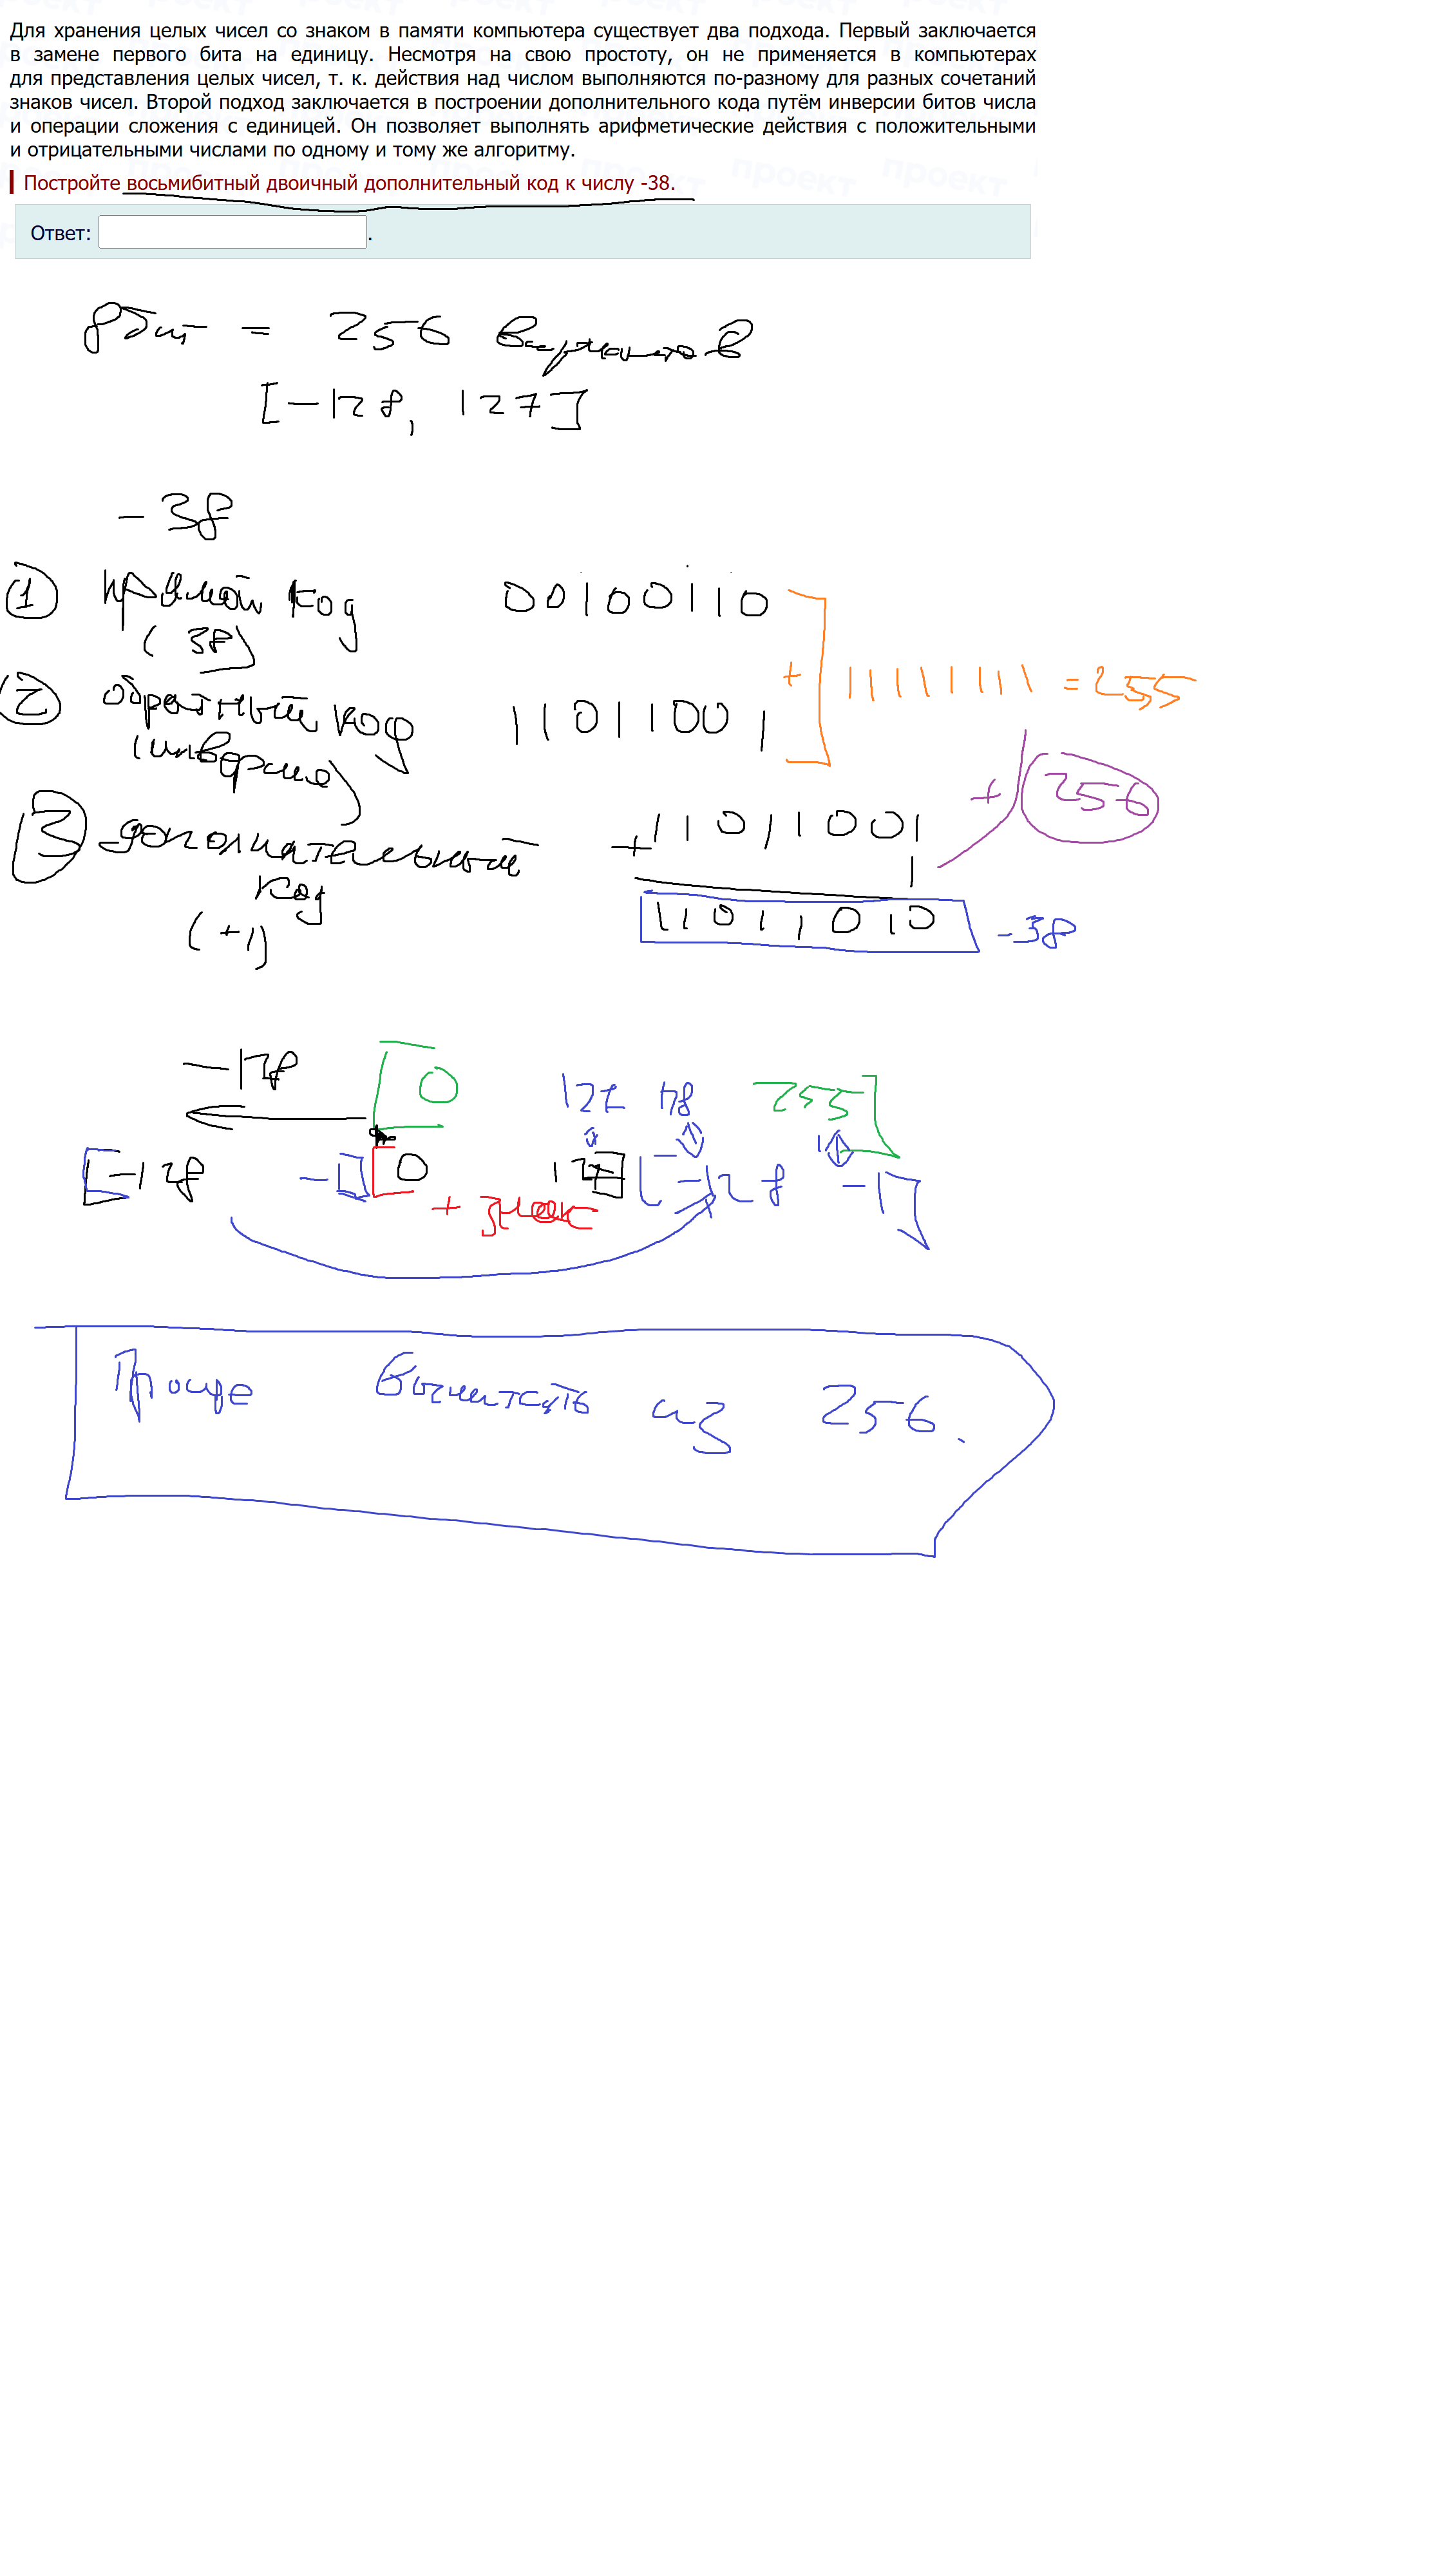 Для хранения целых чисел со знаком в памяти компьютера существует два подхода. Первый заключается
в замене первого бита на единицу. Несмотря на свою простоту, он не применяется в компьютерах
для представления целых чисел, т. к. действия над числом выполняются по-разному для разных сочетаний
знаков чисел. Второй подход заключается в построении дополнительного кода путём инверсии битов числа
и операции сложения с единицей. Он позволяет выполнять арифметические действия с положительными
и отрицательными числами по одному и тому же алгоритму.
Постройте восьмибитный двоичный дополнительный код к числу -38.
Ответ: .
8 бит = 256 вариантов
[-128, 127]
-38
1 прямой код 00100110
(38)
+ 11111111 = 255
2 обратный код 11011001
(инверсия)
+ 256
3 дополнительный + 11011001
код 1
(+1) 11011010 -38
-128 [0 127 128 255]
[-128 -1] [0 127] [-128 -1]
+ знак
Проще вычитать из 256.